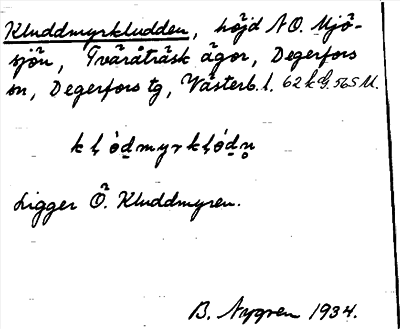 Kluddmyrkludden, höjd NO. Mjö-
sjön, Tväråträsk ägor, Degerfors
sn, Degerfors tg, Västerb. l. 62
klo̱dmyrklo̱dn̥
Ligger Ö. Kluddmyren.
B. Nygren 1934.